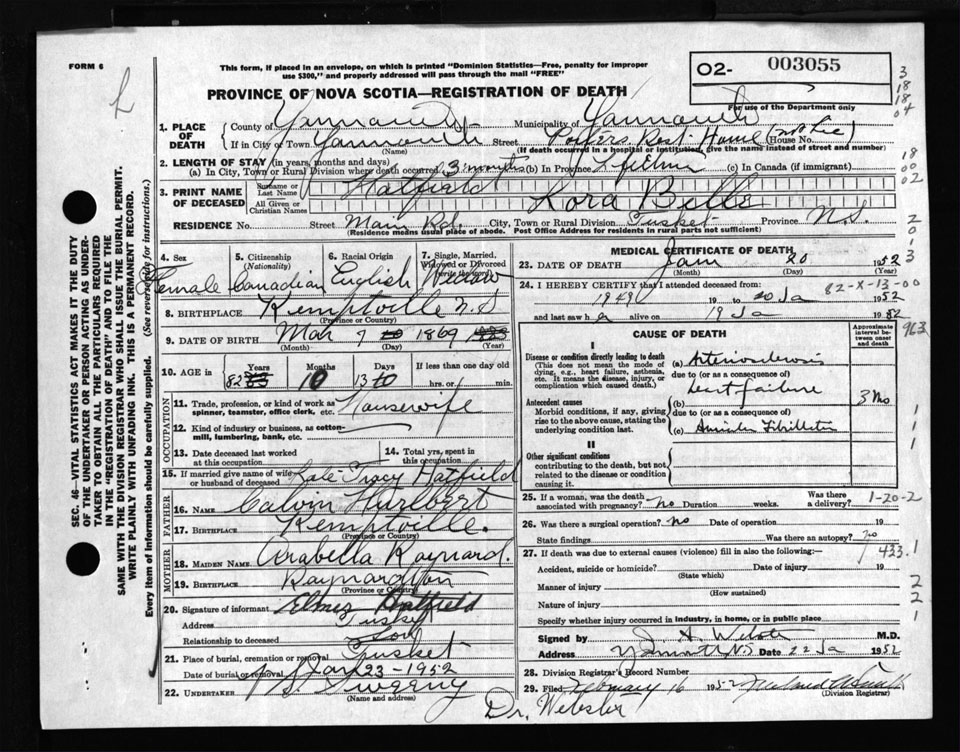 FORM 6
This form, if placed in an envelope, on which is printed "Dominion Statistics—Free, penalty for improper
use $300," and properly addressed will pass through the mail "FREE"
O2- 003055
For use of the Department only
PROVINCE OF NOVA SCOTIA—REGISTRATION OF DEATH
1. PLACE OF DEATH
County of Yarmouth Municipality of Yarmouth
If in City or Town Yarmouth Street Rest Home (House No.
(Name) (If death occurred in a hospital or institution, give the name instead of street and number)
2. LENGTH OF STAY (in years, months and days)
(a) In City, Town or Rural Division where death occurred 3 months (b) In Province Lifetime (c) In Canada (if immigrant)
3. PRINT NAME OF DECEASED
Surname or Last Name Hatfield
All Given or Christian Names Lora Belle
RESIDENCE No. Street Main Rd. City, Town or Rural Division Tusket Province N.S.
(Residence means usual place of abode. Post Office Address for residents in rural parts not sufficient)
4. Sex Female
5. Citizenship (Nationality) Canadian
6. Racial Origin English
7. Single, Married, Widowed or Divorced (write the word) Widow
8. BIRTHPLACE Kemptville N.S
(Province or Country)
9. DATE OF BIRTH Mar 7 1869
(Month) (Day) (Year)
10. AGE in Years Months Days If less than one day old
82 10 13 hrs. or min.
OCCUPATION
11. Trade, profession or kind of work as spinner, teamster, office clerk, etc. Housewife
12. Kind of industry or business, as cotton-mill, lumbering, bank, etc.
13. Date deceased last worked at this occupation
14. Total yrs. spent in this occupation
15. If married give name of wife or husband of deceased Tracy Hatfield
FATHER
16. Name Calvin Hurlbert
17. BIRTHPLACE Kemptville.
(Province or Country)
MOTHER
18. MAIDEN NAME Arabella Raynard.
19. BIRTHPLACE Raynardton
(Province or Country)
20. Signature of informant Elmer Hatfield
Address Tusket
Relationship to deceased Son
21. Place of burial, cremation or removal Tusket
Date of burial or removal Jan 23-1952
22. UNDERTAKER Sweeny
(Name and address)
MEDICAL CERTIFICATE OF DEATH
23. DATE OF DEATH Jan 20 1952
(Month) (Day) (Year)
24. I HEREBY CERTIFY that I attended deceased from:
82-X-13-00
1949 19 to 20 Ja 1952
and last saw her alive on 19 Ja 1952
CAUSE OF DEATH
Approximate interval between onset and death
963
I
Disease or condition directly leading to death
(This does not mean the mode of dying, e.g., heart failure, asthenia, etc. It means the disease, injury, or complication which caused death.)
(a) Arteriosclerosis
due to (or as a consequence of)
(b) heart failure 3 Mo
Antecedent causes
Morbid conditions, if any, giving rise to the above cause, stating the underlying condition last.
due to (or as a consequence of)
(c) Auricular Fibrillation
II
Other significant conditions
contributing to the death, but not related to the disease or condition causing it.
25. If a woman, was the death associated with pregnancy? No Duration weeks. Was there a delivery?
1-20-2
26. Was there a surgical operation? No Date of operation 19
State findings Was there an autopsy? No
27. If death was due to external causes (violence) fill in also the following:— 433.1
Accident, suicide or homicide? Date of injury 19
(State which)
Manner of injury
(How sustained)
Nature of injury
Specify whether injury occurred in industry, in home, or in public place
Signed by J. A. Webster M.D.
Address Yarmouth NS Date 22 Ja 1952
28. Division Registrar's Record Number
29. Filed February 16 1952
(Division Registrar)
Dr. Webster
SEC. 46—VITAL STATISTICS ACT MAKES IT THE DUTY
OF THE UNDERTAKER OR PERSON ACTING AS UNDER-
TAKER TO OBTAIN ALL THE PARTICULARS REQUIRED
IN THE "REGISTRATION OF DEATH" AND TO FILE THE
SAME WITH THE DIVISION REGISTRAR WHO SHALL ISSUE THE BURIAL PERMIT.
WRITE PLAINLY WITH UNFADING INK. THIS IS A PERMANENT RECORD.
Every item of information should be carefully supplied. (See reverse side for instructions.)